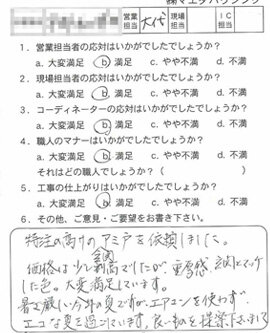 ㈱マエダハウジング
営業担当 大代 現場担当 IC担当
1．営業担当者の応対はいかがでしたでしょうか？
a. 大変満足 b. 満足 c. やや不満 d. 不満
2．現場担当者の応対はいかがでしたでしょうか？
a. 大変満足 b. 満足 c. やや不満 d. 不満
3．コーディネーターの応対はいかがでしたでしょうか？
a. 大変満足 b. 満足 c. やや不満 d. 不満
4．職人のマナーはいかがでしたでしょうか？
a. 大変満足 b. 満足 c. やや不満 d. 不満
それはどの職人でしょうか？（ ）
5．工事の仕上がりはいかがでしたでしょうか？
a. 大変満足 b. 満足 c. やや不満 d. 不満
6．その他、ご意見・ご要望をお書き下さい。
特注の高さのアミ戸を依頼しました。
価格は少し割高でしたが、重厚感、玄関とマッチ
した色。大変満足しています。
暑さ厳しい今年の夏ですが、エアコンを使わず
エコな夏を過ごしています。良い物を提案下さいまして